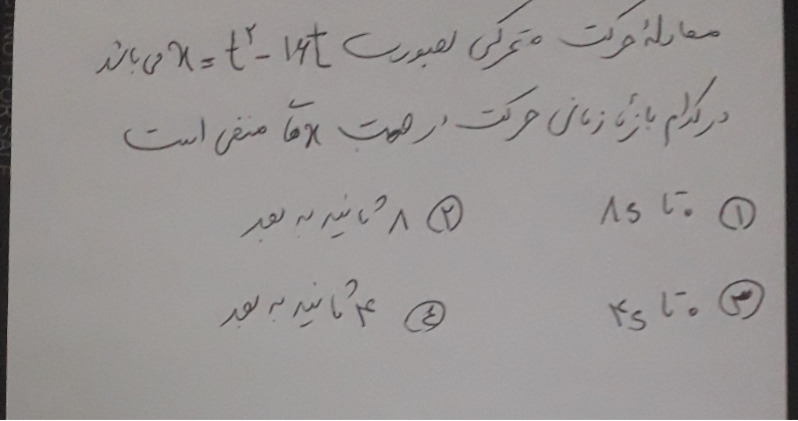 معادلهٔ حرکت متحرکی بصورت x = t^۲ - ۱۶t می باشد
در کدام بازهٔ زمانی حرکت در جهت xها منفی است
① ۰ تا ۸s ② ۸ ثانیه به بعد
③ ۰ تا ۴s ④ ۴ ثانیه به بعد
NOT FOR SALE